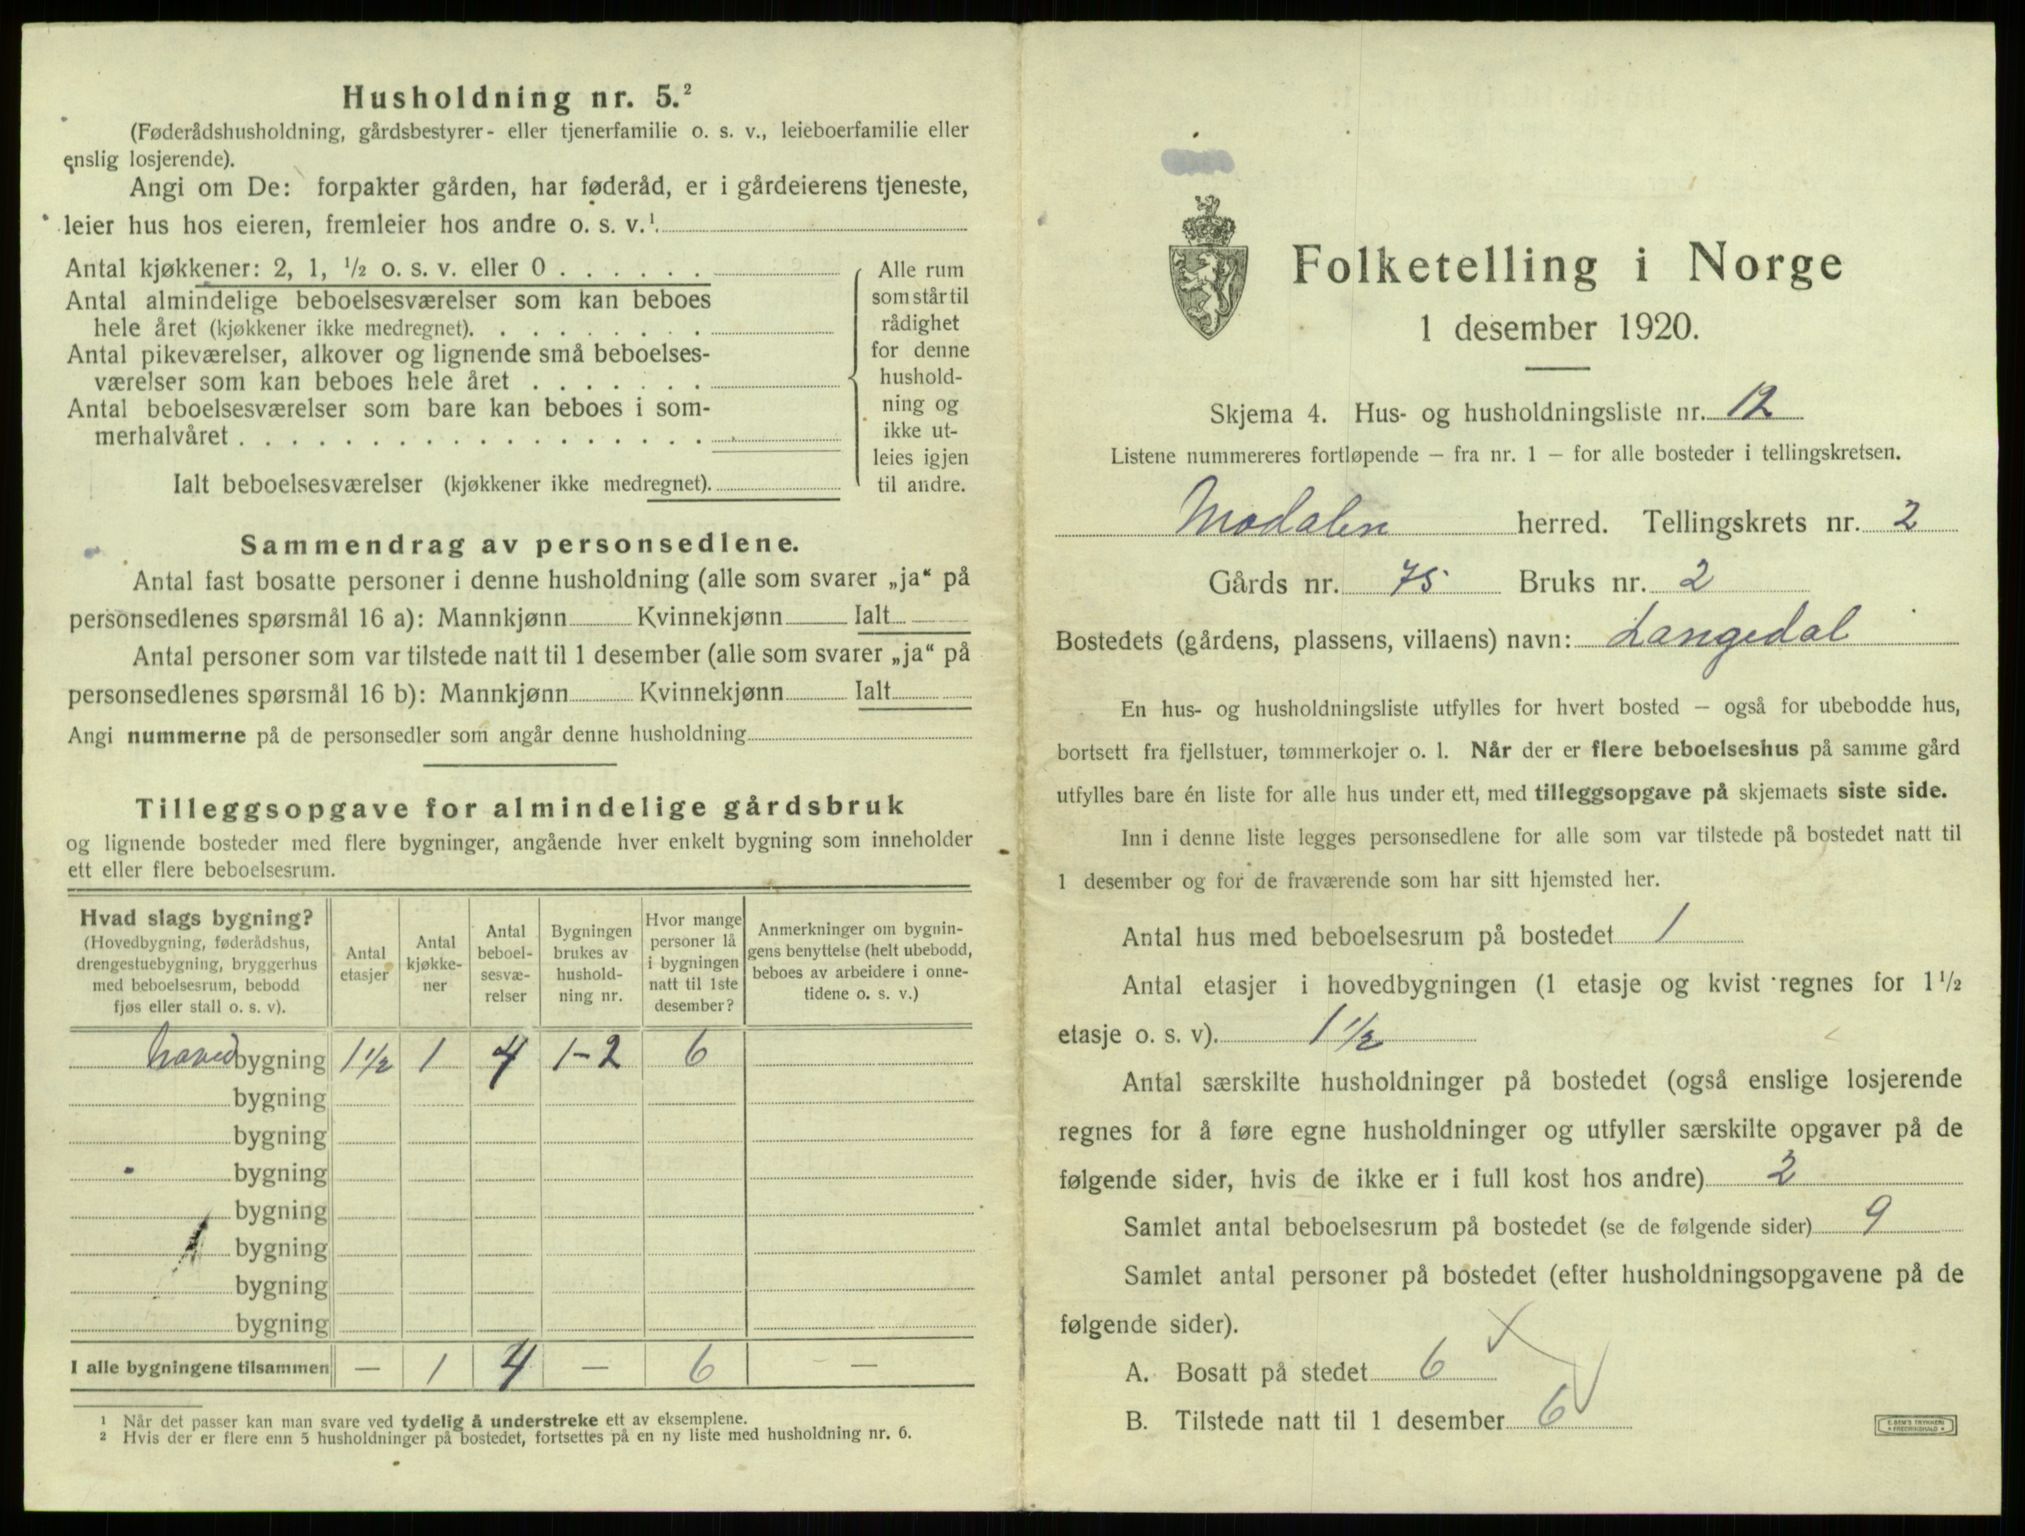 Husholdning nr. 5.²
(Føderådshusholdning, gårdsbestyrer- eller tjenerfamilie o. s. v., leieboerfamilie eller
enslig losjerende).
Angi om De: forpakter gården, har føderåd, er i gårdeierens tjeneste,
leier hus hos eieren, fremleier hos andre o. s. v.¹
Antal kjøkkener: 2, 1, ½ o. s. v. eller 0
Antal almindelige beboelsesværelser som kan beboes
hele året (kjøkkener ikke medregnet).
Antal pikeværelser, alkover og lignende små beboelses-
værelser som kan beboes hele året
Antal beboelsesværelser som bare kan beboes i som-
merhalvåret
Ialt beboelsesværelser (kjøkkener ikke medregnet).
Alle rum
som står til
rådighet
for denne
hushold-
ning og
ikke ut-
leies igjen
til andre.
Sammendrag av personsedlene.
Antal fast bosatte personer i denne husholdning (alle som svarer „ja“ på
personsedlenes spørsmål 16 a): Mannkjønn Kvinnekjønn Ialt
Antal personer som var tilstede natt til 1 desember (alle som svarer „ja“ på
personsedlenes spørsmål 16 b): Mannkjønn Kvinnekjønn Ialt
Angi nummerne på de personsedler som angår denne husholdning
Tilleggsopgave for almindelige gårdsbruk
og lignende bosteder med flere bygninger, angående hver enkelt bygning som inneholder
ett eller flere beboelsesrum.
Hvad slags bygning?
(Hovedbygning, føderådshus,
drengestuebygning, bryggerhus
med beboelsesrum, bebodd
fjøs eller stall o. s. v).
Antal
etasjer
Antal
kjøkke-
ner
Antal
beboel-
sesvæ-
relser
Bygningen
brukes av
hushold-
ning nr.
Hvor mange
personer lå
i bygningen
natt til 1ste
desember?
Anmerkninger om bygnin-
gens benyttelse (helt ubebodd,
beboes av arbeidere i onne-
tidene o. s. v.)
hovedbygning 1½ 1 4 1-2 6
bygning
bygning
bygning
bygning
bygning
bygning
bygning
I alle bygningene tilsammen — 1 4 — 6 —
¹ Når det passer kan man svare ved tydelig å understreke ett av eksemplene.
² Hvis der er flere enn 5 husholdninger på bostedet, fortsettes på en ny liste med husholdning nr. 6.
Folketelling i Norge
1 desember 1920.
Skjema 4. Hus- og husholdningsliste nr. 12
Listene nummereres fortløpende – fra nr. 1 – for alle bosteder i tellingskretsen.
Modalen herred. Tellingskrets nr. 2
Gårds nr. 75 Bruks nr. 2
Bostedets (gårdens, plassens, villaens) navn: Langedal
En hus- og husholdningsliste utfylles for hvert bosted – også for ubebodde hus,
bortsett fra fjellstuer, tømmerkojer o. l. Når der er flere beboelseshus på samme gård
utfylles bare én liste for alle hus under ett, med tilleggsopgave på skjemaets siste side.
Inn i denne liste legges personsedlene for alle som var tilstede på bostedet natt til
1 desember og for de fraværende som har sitt hjemsted her.
Antal hus med beboelsesrum på bostedet 1
Antal etasjer i hovedbygningen (1 etasje og kvist regnes for 1½
etasje o. s. v). 1½
Antal særskilte husholdninger på bostedet (også enslige losjerende
regnes for å føre egne husholdninger og utfyller særskilte opgaver på de
følgende sider, hvis de ikke er i full kost hos andre) 2
Samlet antal beboelsesrum på bostedet (se de følgende sider) 9
Samlet antal personer på bostedet (efter husholdningsopgavene på de
følgende sider).
A. Bosatt på stedet 6
B. Tilstede natt til 1 desember 6